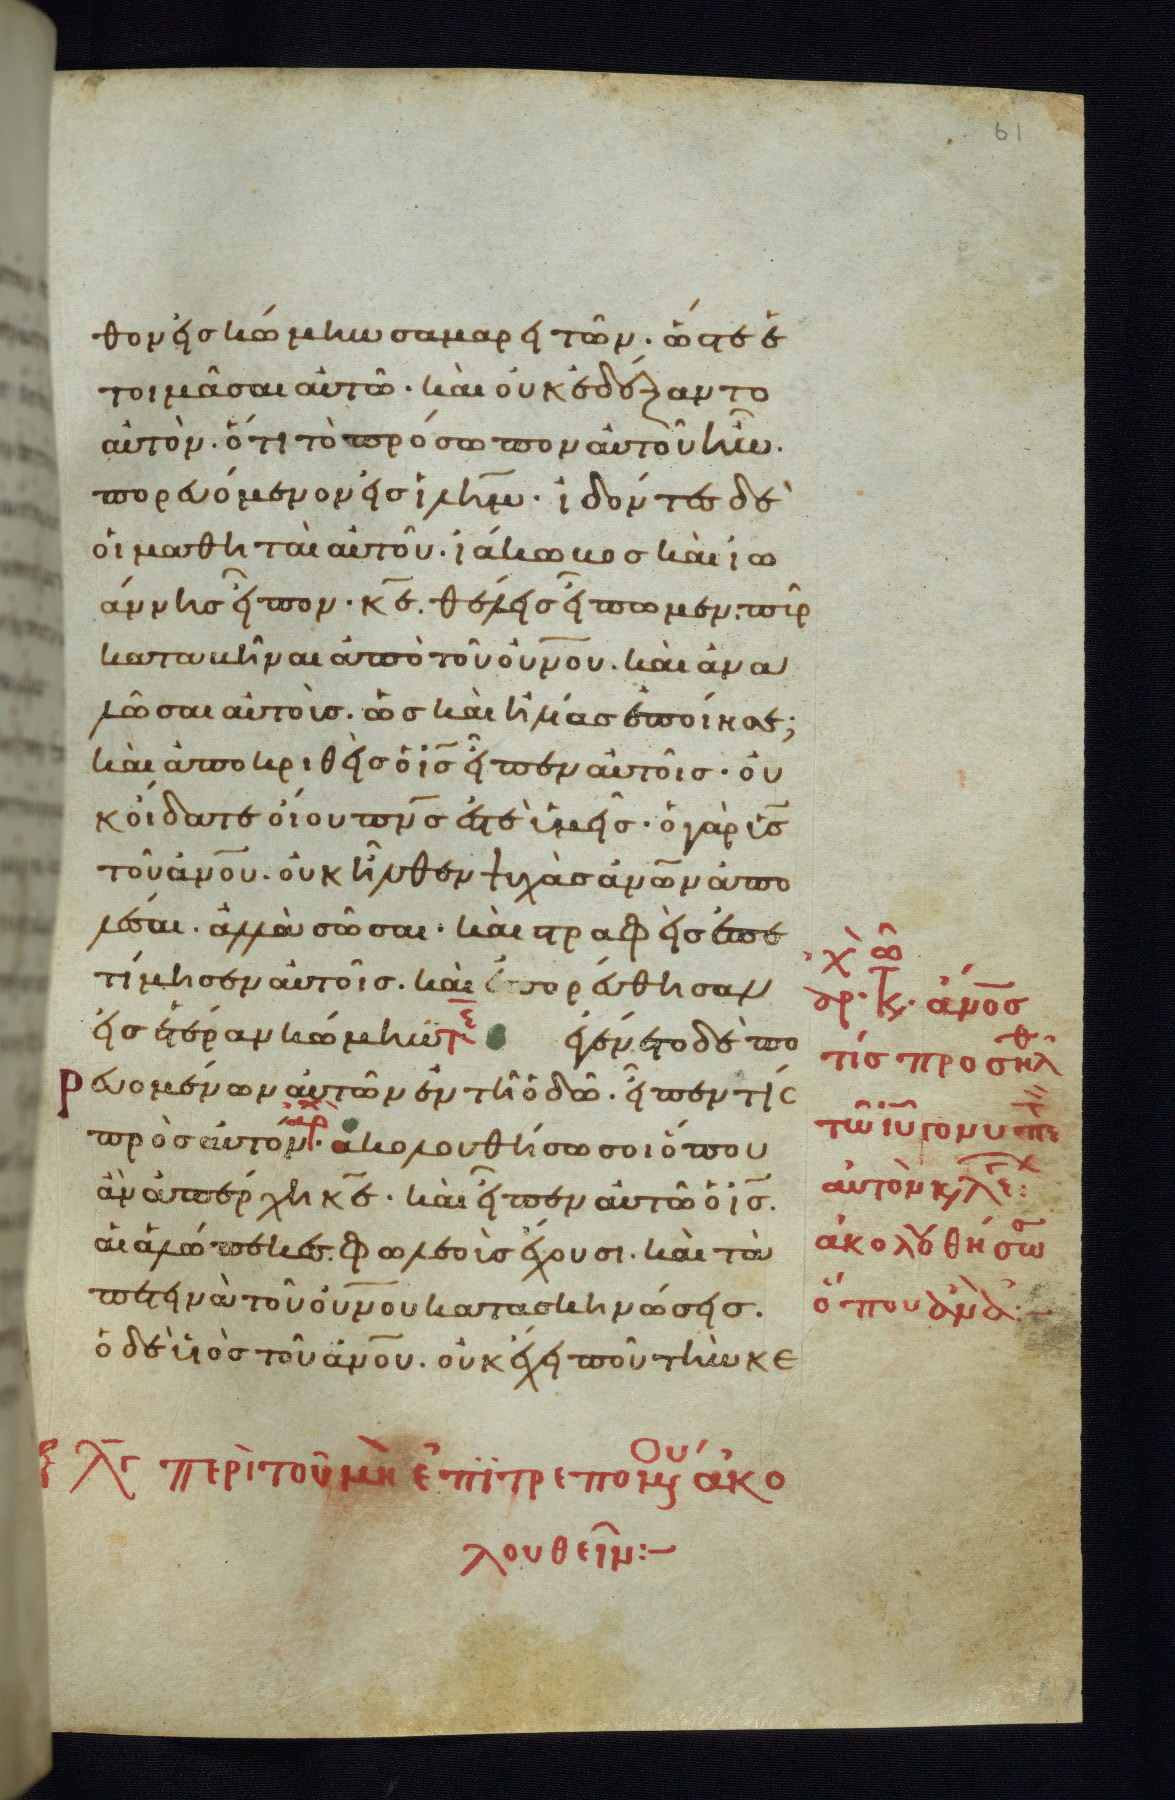 61
θον εἰς κώμην σαμαρειτῶν· ὥστε ἑ
τοιμᾶσαι αὐτῶ· καὶ οὐκ ἐδέξαντο
αὐτὸν· ὅτι τὸ πρόσωπον αὐτοῦ ἦν·
πορευόμενον εἰς ἰλημ· ἰδόντες δὲ
οἱ μαθηταὶ αὐτοῦ· ἰάκωβος καὶ ἰω
άννης εἶπον· κε· θέλεις εἴπωμεν πῦρ
καταβῆναι ἀπὸ τοῦ ουνου· καὶ ἀνα
λῶσαι αὐτοὺς· ὡς καὶ ἠλίας ἐποίησε;
καὶ ἀποκριθεὶς ὁ ις εἶπεν αὐτοῖς· οὐ
κ οἴδατε οἵου πνς ἐστὲ ὑμεῖς· ὁ γὰρ υς
τοῦ ανου· οὐκ ἦλθεν ψυχὰς ανων ἀπο
λέσαι· ἀλλὰ σῶσαι· καὶ στραφεὶς ἐπε
τίμησεν αὐτοῖς· καὶ ἐπορεύθησαν
εἰς ἑτέραν κώμην ἐγένετο δὲ πο
ρευομένων αὐτῶν ἐν τῆ ὁδῶ· εἶπεν τις
πρὸς αὐτόν· ἀκολουθήσω σοι ὅπου
ἂν ἀπέρχη κε· καὶ εἶπεν αὐτῶ ὁ ις·
αἱ ἀλώπεκες φωλεοὺς ἔχουσι· καὶ τὰ
πετεινὰ τοῦ ουνου κατασκηνώσεις·
ὁ δὲ υἱὸς τοῦ ανου· οὐκ ἔχει ποῦ τὴν κε
τῶ
ανος
τίς προσῆλθ
τῶ ιυ
αὐτὸν κ λε:
ἀκολουθήσω
ὅπου ἀν ἀ:-
ξ λγ περὶ τοῦ μὴ ἐπιτρεπομένου ἀκο
λουθεῖν:-